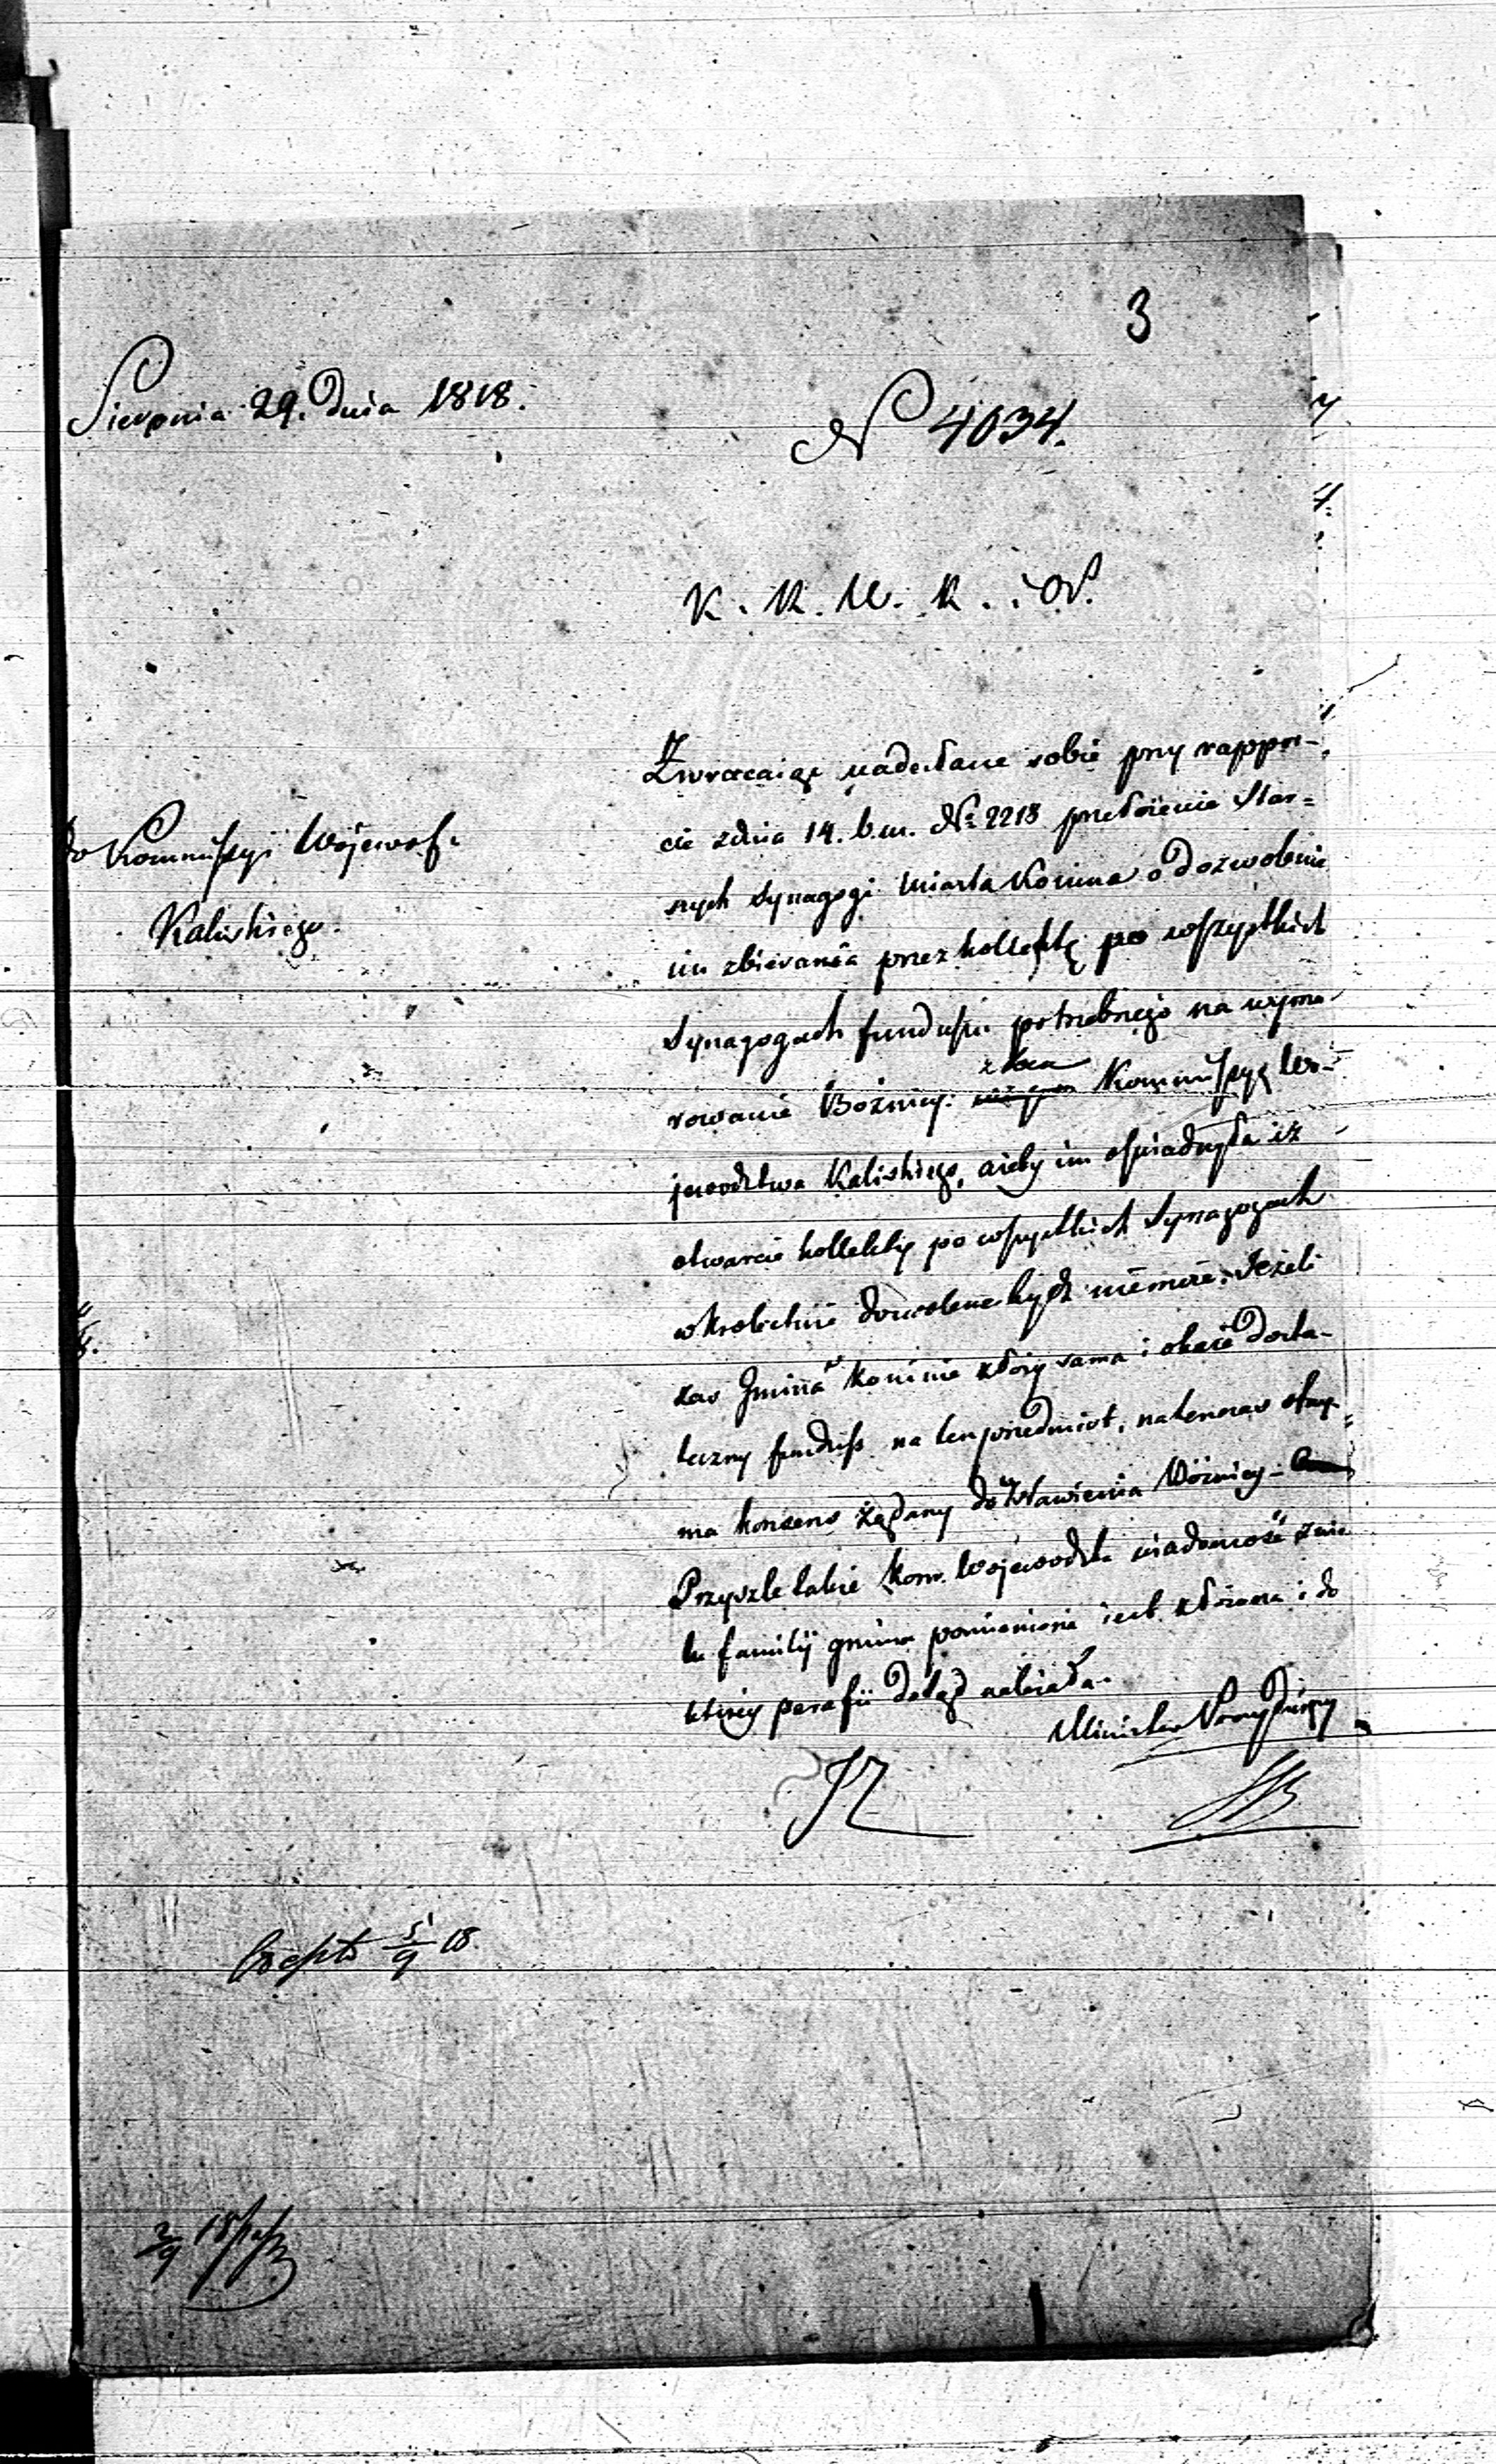 3
Sierpnia 29. Dnia 1818.
N 4034.
K. R. W. R. i O.P.
do Kommissyi Wojewod.
Kaliskiego.
Zwracaiąc nadesłane sobie przy rappor-
cie z dnia 14. b. m. N: 2218 przełożenie Star=
szych Synagogi Miasta Konina o dozwolenie
im zbierania przez kollektę po wszystkich
Synagogach funduszu potrzebnego na wymu-
rowanie Bożnicy: zleca Kommissyą Wo-
jewodztwa Kaliskiego, ażeby im oświadczyła iż
otwarcie kollekty po wszystkich Synagogach
w Krolestwie dozwolone bydź niemoże. Jeżeli
zaś Gmina w Koninie złoży sama i okaże dosta-
teczny fundusz na ten przedmiot, natenczas otrzy=
ma konsens żądany do wystawienia Bożnicy -
Przyszle także Kom. Wojewodzka wiadomość z wie
lu familij gmina pomieniona iest złożona i do
któréy parafii dotąd należała.
Minister Prezyduiący
JZ
Expto 5/9 18.
2/9 18